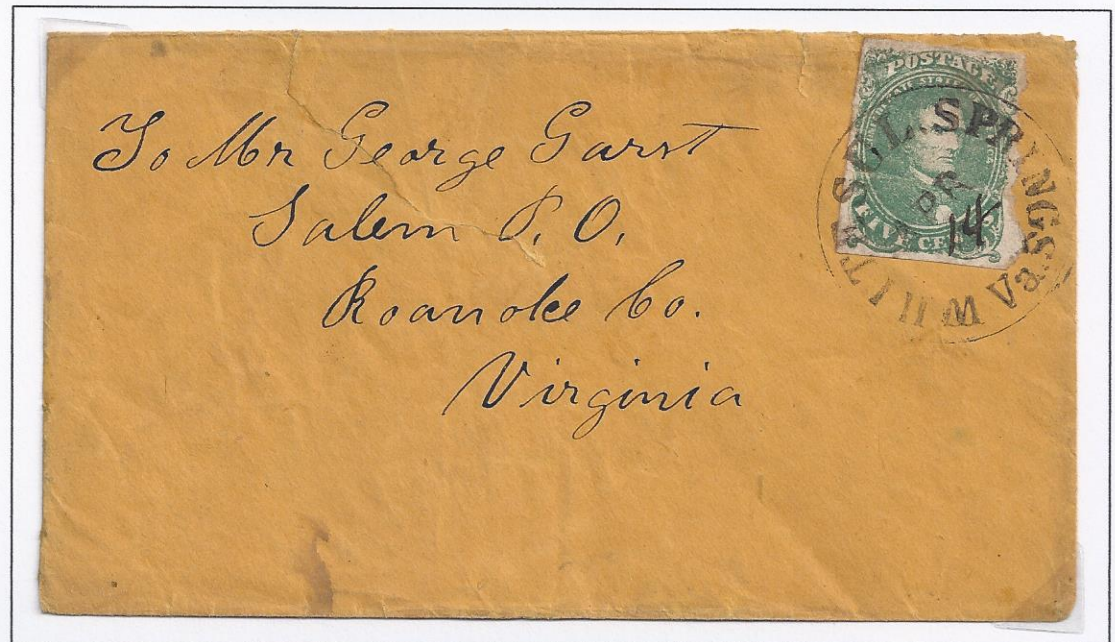 To Mr George Garst
Salem P. O.
Roanoke Co.
Virginia
POSTAGE
FIVE CE
WHITE SUL. SPRINGS Va.
PR
14